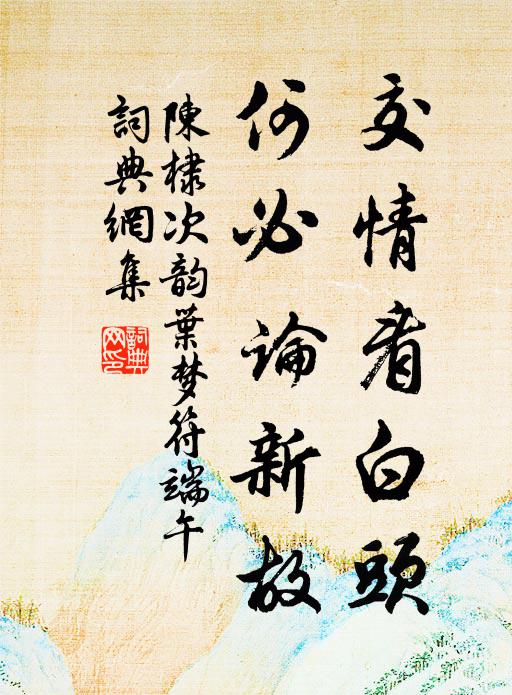 交情看白頭
何必論新故
陳棣次韵葉梦符端午
詞典網集
詞典
网印